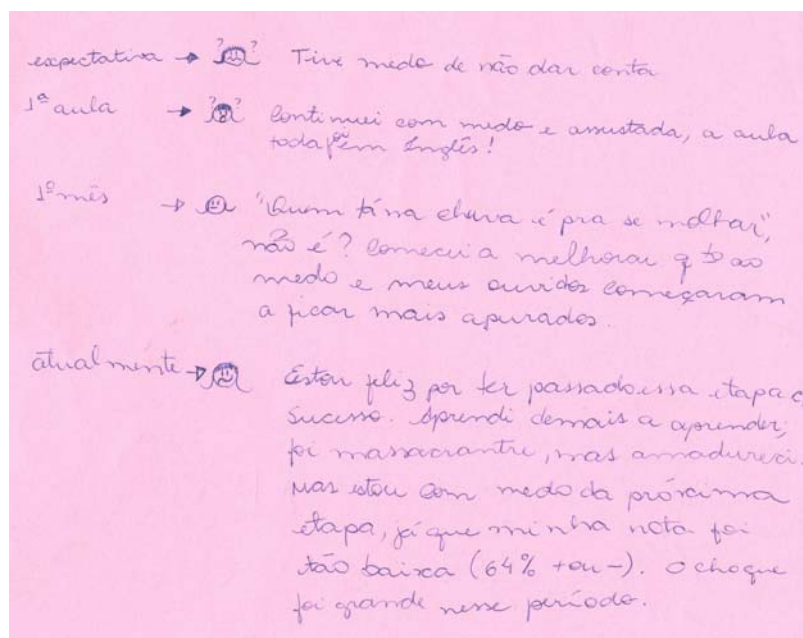 expectativa → ? ? Tive medo de não dar conta
1ª aula → ? ? Continuei com medo e assustada, a aula
toda foi em Inglês!
1º mês → "Quem tá na chuva é pra se molhar",
não é? Comecei a melhorar qto ao
medo e meus ouvidos começaram
a ficar mais apurados.
atualmente → Estou feliz por ter passado essa etapa c/
sucesso. Aprendi demais a aprender;
foi massacrante, mas amadureci.
Mas estou com medo da próxima
etapa, já que minha nota foi
tão baixa (64% + ou -). O choque
foi grande nesse período.